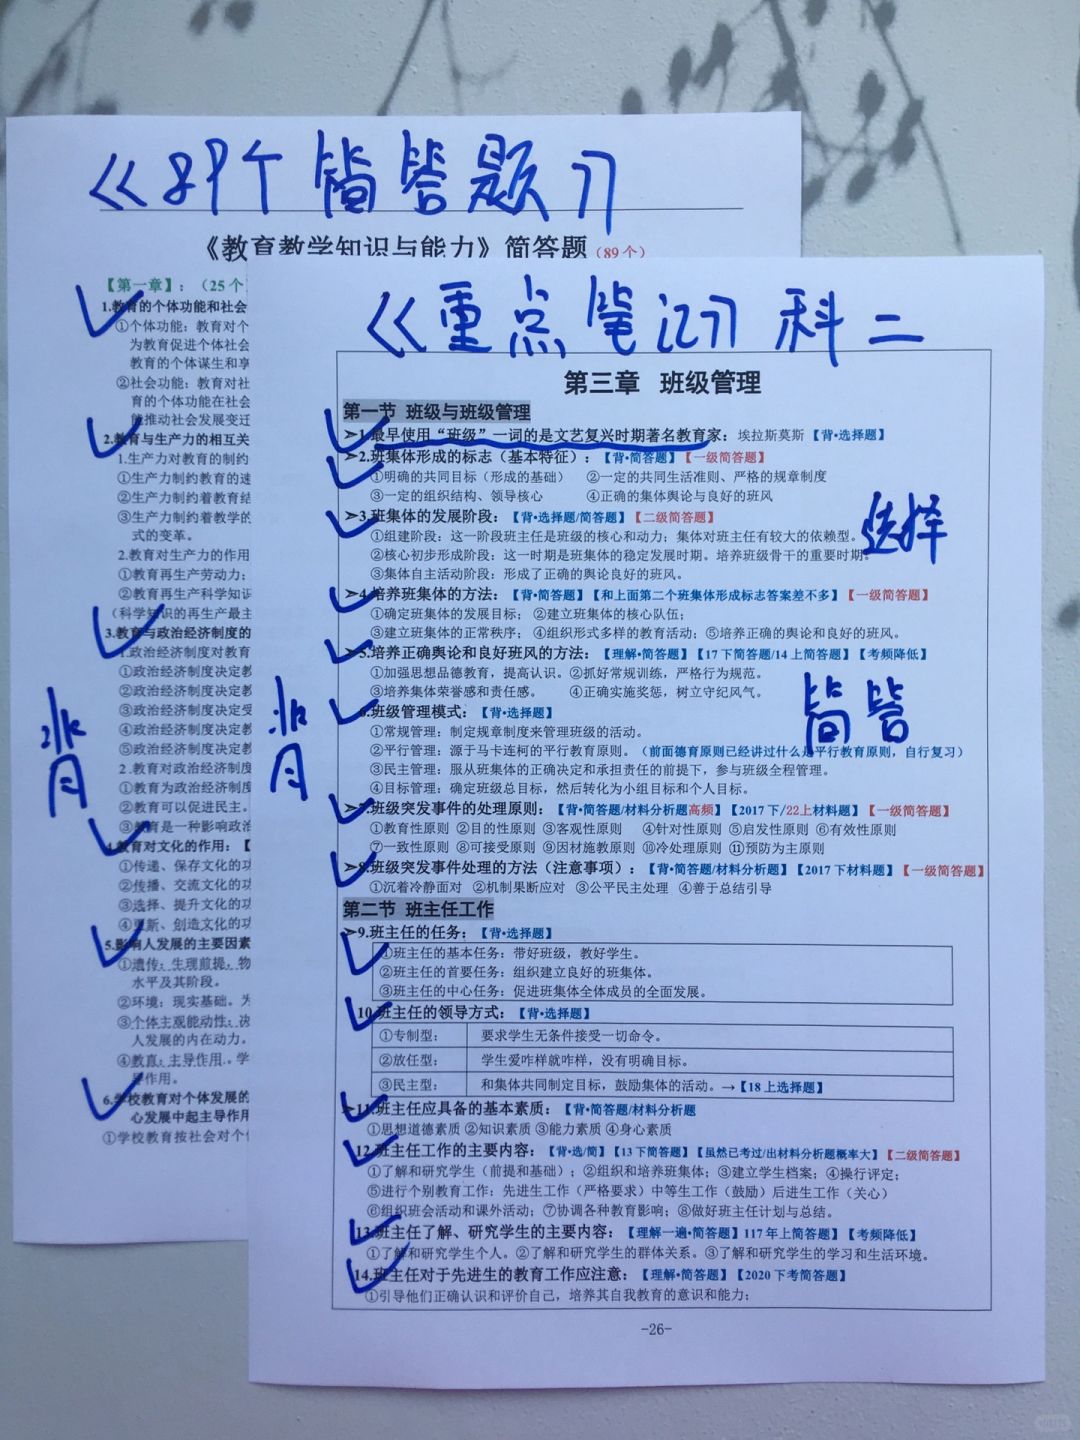 《89个简答题》
《教育教学知识与能力》简答题（89个）
【第一章】：（25个
1.教育的个体功能和社会
①个体功能：教育对个
为教育促进个体社会
教育的个体谋生和享
②社会功能：教育对社
育的个体功能在社会
能推动社会发展变迁
2.教育与生产力的相互关
1.生产力对教育的制约
①生产力制约教育的速
②生产力制约着教育结
③生产力制约着教学的
式的变革。
2.教育对生产力的作用
①教育再生产劳动力；
②教育再生产科学知识
（科学知识的再生产最主
3.教育与政治经济制度的
1.政治经济制度对教育
①政治经济制度决定教
②政治经济制度决定教
③政治经济制度决定受
④政治经济制度决定教
⑤政治经济制度决定教
2.教育对政治经济制度
①教育为政治经济制度
②教育可以促进民主。
③教育是一种影响政治
4.教育对文化的作用：【
①传递、保存文化的功
②传播、交流文化的功
③选择、提升文化的功
④更新、创造文化的功
5.影响人发展的主要因素
①遗传：生理前提，物
水平及其阶段。
②环境：现实基础。为
③个体主观能动性：决
人发展的内在动力。
④教育：主导作用。学
导作用。
6.学校教育对个体发展的
心发展中起主导作用
①学校教育按社会对个
背
《重点笔记》科二
第三章 班级管理
第一节 班级与班级管理
➢1.最早使用“班级”一词的是文艺复兴时期著名教育家：埃拉斯莫斯【背•选择题】
➢2.班集体形成的标志（基本特征）：【背•简答题】【一级简答题】
①明确的共同目标（形成的基础） ②一定的共同生活准则、严格的规章制度
③一定的组织结构、领导核心 ④正确的集体舆论与良好的班风
➢3.班集体的发展阶段：【背•选择题/简答题】【二级简答题】
①组建阶段：这一阶段班主任是班级的核心和动力；集体对班主任有较大的依赖型。
选择
②核心初步形成阶段：这一时期是班集体的稳定发展时期。培养班级骨干的重要时期。
③集体自主活动阶段：形成了正确的舆论良好的班风。
➢4.培养班集体的方法：【背•简答题】【和上面第二个班集体形成标志答案差不多】【一级简答题】
①确定班集体的发展目标； ②建立班集体的核心队伍；
③建立班集体的正常秩序； ④组织形式多样的教育活动；⑤培养正确的舆论和良好的班风。
➢5.培养正确舆论和良好班风的方法：【理解•简答题】【17下简答题/14上简答题】【考频降低】
①加强思想品德教育，提高认识。②抓好常规训练，严格行为规范。
③培养集体荣誉感和责任感。 ④正确实施奖惩，树立守纪风气。
背
简答
➢6.班级管理模式：【背•选择题】
①常规管理：制定规章制度来管理班级的活动。
②平行管理：源于马卡连柯的平行教育原则。（前面德育原则已经讲过什么是平行教育原则，自行复习）
③民主管理：服从班集体的正确决定和承担责任的前提下，参与班级全程管理。
④目标管理：确定班级总目标，然后转化为小组目标和个人目标。
➢7.班级突发事件的处理原则：【背•简答题/材料分析题高频】【2017下/22上材料题】【一级简答题】
①教育性原则 ②目的性原则 ③客观性原则 ④针对性原则 ⑤启发性原则 ⑥有效性原则
⑦一致性原则 ⑧可接受原则 ⑨因材施教原则 ⑩冷处理原则 ⑪预防为主原则
➢8.班级突发事件处理的方法（注意事项）：【背•简答题/材料分析题】【2017下材料题】【一级简答题】
①沉着冷静面对 ②机制果断应对 ③公平民主处理 ④善于总结引导
第二节 班主任工作
➢9.班主任的任务：【背•选择题】
①班主任的基本任务：带好班级，教好学生。
②班主任的首要任务：组织建立良好的班集体。
③班主任的中心任务：促进班集体全体成员的全面发展。
10.班主任的领导方式：【背•选择题】
①专制型： 要求学生无条件接受一切命令。
②放任型： 学生爱咋样就咋样，没有明确目标。
③民主型： 和集体共同制定目标，鼓励集体的活动。→【18上选择题】
➢11.班主任应具备的基本素质：【背•简答题/材料分析题
①思想道德素质 ②知识素质 ③能力素质 ④身心素质
12.班主任工作的主要内容：【背•选/简】【13下简答题】【虽然已考过/出材料分析题概率大】【二级简答题】
①了解和研究学生（前提和基础）；②组织和培养班集体；③建立学生档案；④操行评定；
⑤进行个别教育工作：先进生工作（严格要求）中等生工作（鼓励）后进生工作（关心）
⑥组织班会活动和课外活动；⑦协调各种教育影响；⑧做好班主任计划与总结。
13.班主任了解、研究学生的主要内容：【理解一遍•简答题】117年上简答题】【考频降低】
①了解和研究学生个人。②了解和研究学生的群体关系。③了解和研究学生的学习和生活环境。
14.班主任对于先进生的教育工作应注意：【理解•简答题】【2020下考简答题】
①引导他们正确认识和评价自己，培养其自我教育的意识和能力；
-26-